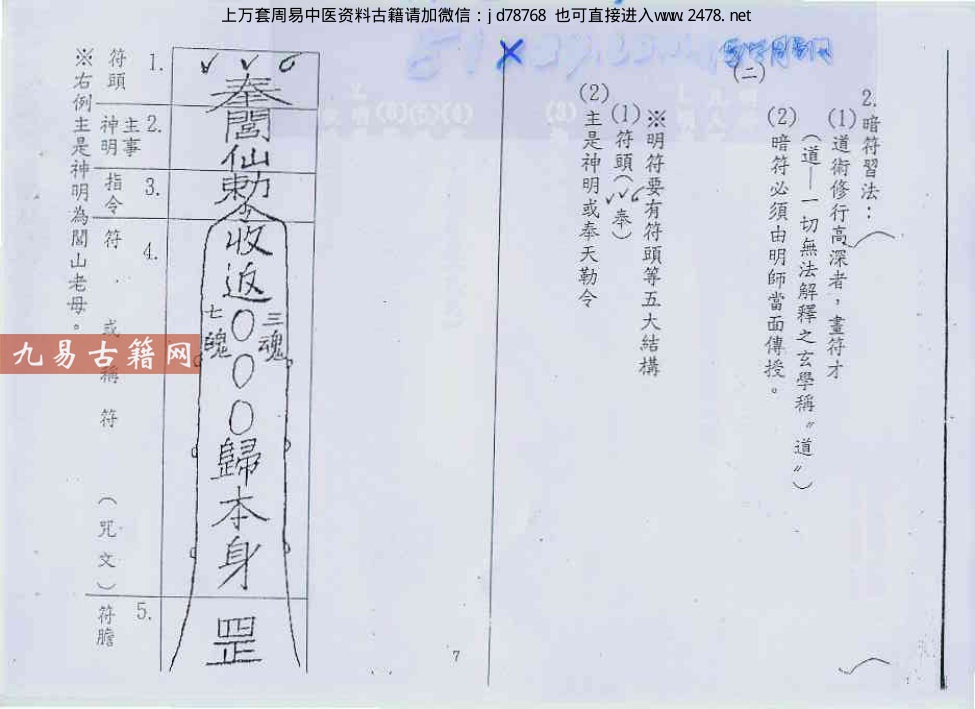 上万套周易中医资料古籍请加微信：jd78768 也可直接进入www.2478.net
(二)
2.暗符習法：
(1)道術修行高深者，畫符才
(道—一切無法解釋之玄學稱〝道〞)
(2)暗符必須由明師當面傳授。
※明符要有符頭等五大結構
(1)符頭(√√ 奉)
(2)主是神明或奉天勒令
7
奉
閭
仙
勅
令
收
返
三魂
七魄
○
○
○
歸
本
身
罡
1. 符頭
2. 主事神明
3. 指令
4. 符 或稱符 (咒文)
5. 符膽
※右例主是神明為閭山老母。
九易古籍网